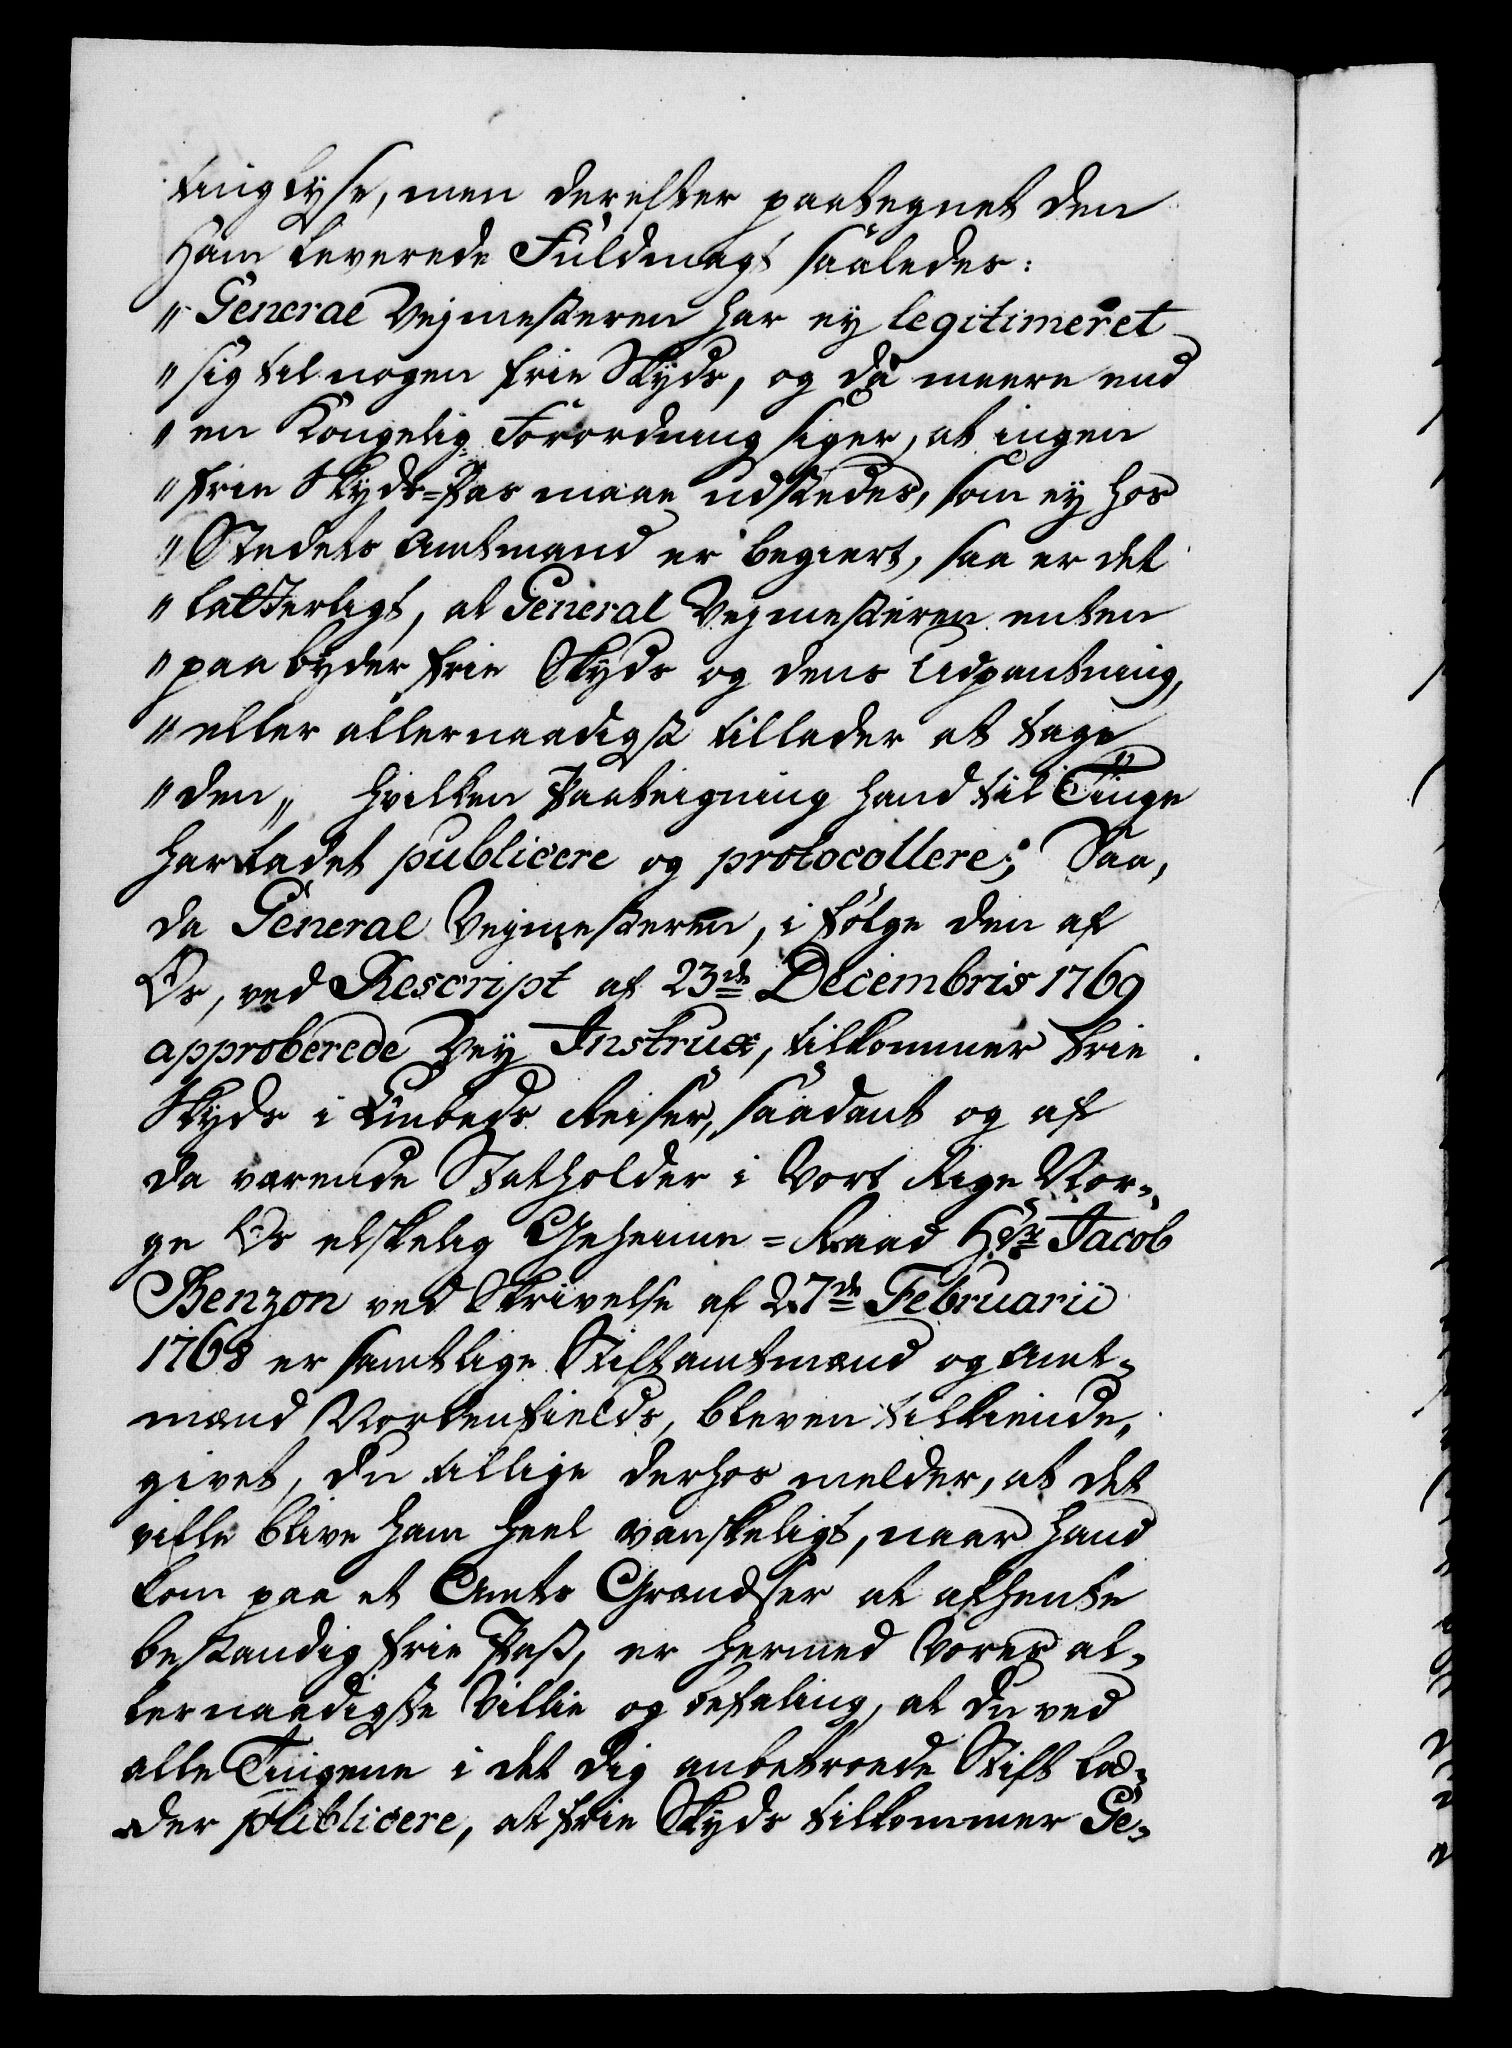 tinglyse, men derefter paategnet den
ham leverede Fuldmagt saaledes:
„General Vejmesteren har ey legitimeret
„sig til nogen frie Skyds, og da meere end
„en Kongelig Forordning siger, at ingen
„frie Skyds-Pas maae udstedes, som ey hos
„Stedets Amtmand er begiert, saa er det
„latterligt, at General Vejmesteren enten
„paabyder frie Skyds og dens Udpantning,
„eller allernaadigst tillader at tage
„den„ hvilken Paateigning hand til Tinge
har ladet publicere og protocollere; Saa,
da General Vejmesteren, i følge den af
Os, ved Rescript af 23de Decembris 1769
approberede Vey Instrux, tilkommer frie
Skyds i Embeds Reiser, saadant og af
da værende Statholder i Vort Rige Nor-
ge Os elskelig Geheime-Raad Hr Jacob
Benzon ved Skrivelse af 27de Februarii
1768 er samtlige Stiftamtmænd og Amt-
mænd Nordenfields, bleven tilkiende-
givet, du tillige derhos melder, at det
ville blive ham heel vanskeligt, naar hand
kom paa et Amts Grændser at afhente
bestandig frie Pass, er hermed Vores al-
lernaadigste Villie og Befaling, at du ved
alle Tingene i det dig anbetroede Stift lad-
der publicere, at frie Skyds tilkommer Ge-